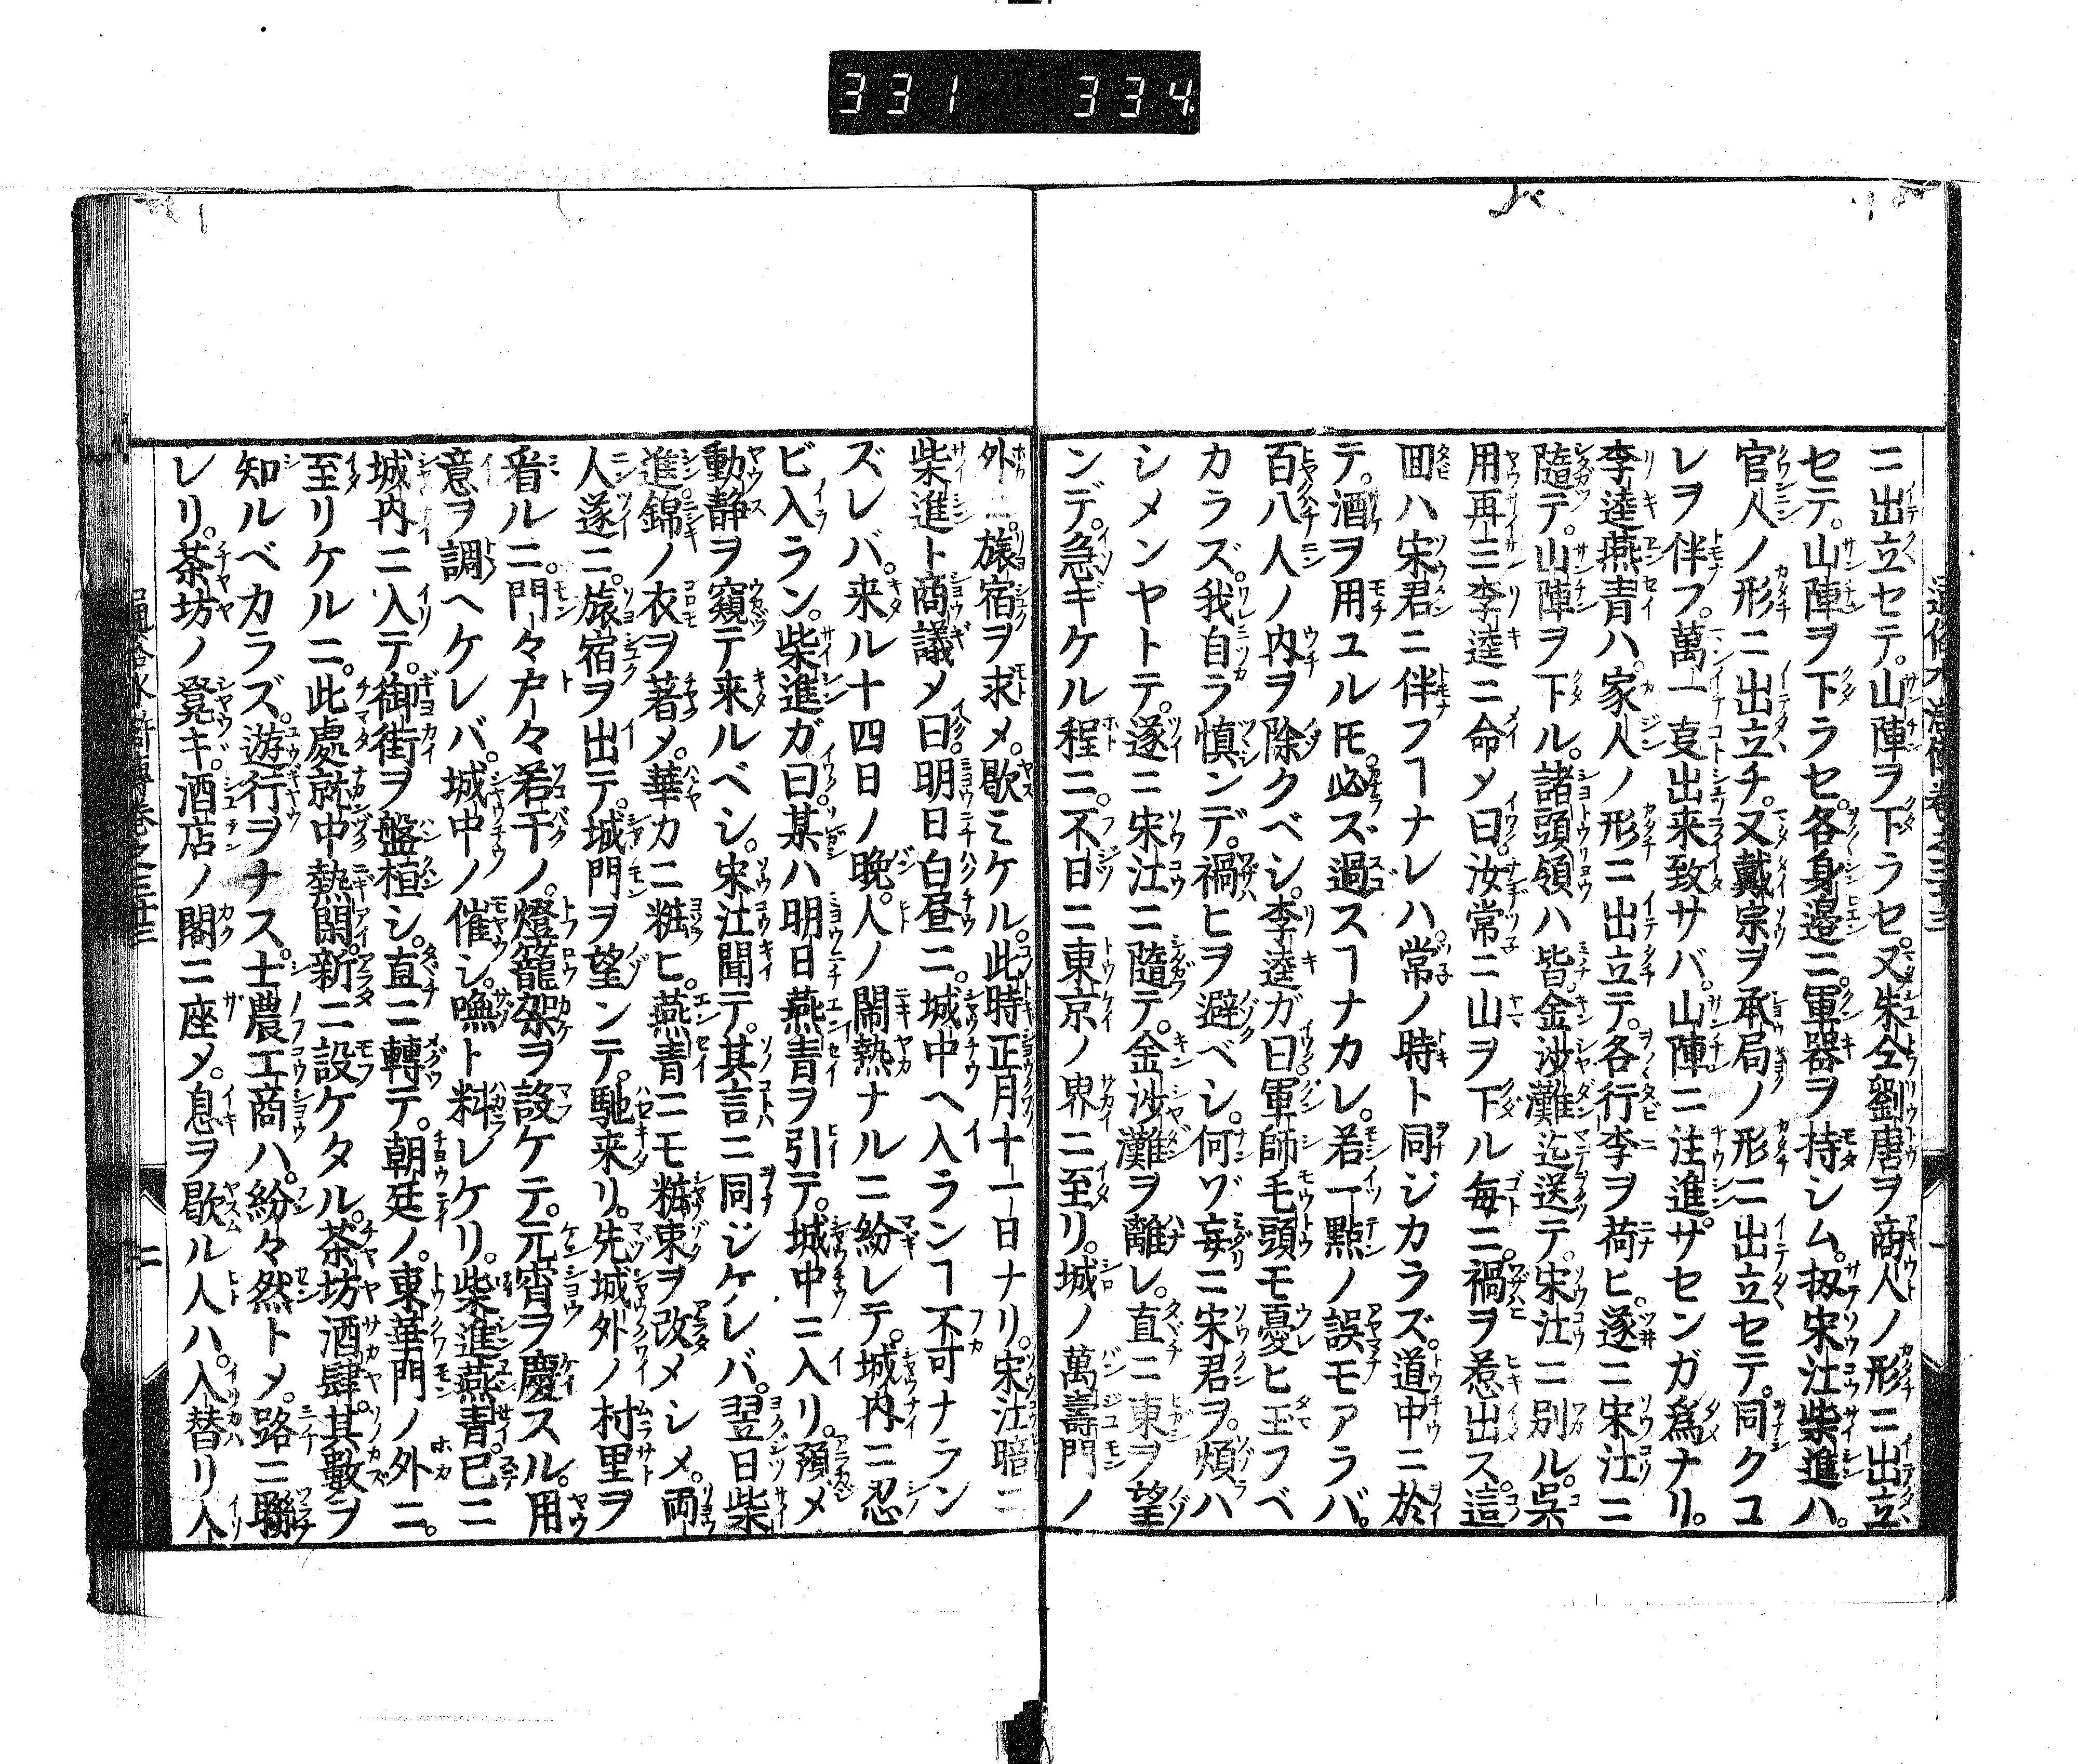 331 334
ニ出立セテ。山陣ヲ下ラセ。又朱仝劉唐ヲ商人ノ形ニ出立
セテ。山陣ヲ下ラセ。各身邉ニ。軍器ヲ持シム。扨宋江柴進ハ。
官人ノ形ニ出立チ。又戴宗ヲ承局ノ形ニ出立セテ。同クコ
レヲ伴フ。萬一叓出来致サバ。山陣ニ注進ザセンガ為ナリ。
李逵燕青ハ。家人ノ形ニ出立テ。各行李ヲ荷ヒ。遂ニ宋江ニ
隨テ。山陣ヲ下ル。諸頭領ハ皆。金沙灘迄送テ。宋江ニ別ル。呉
用再三李逵ニ命メ曰。汝常ニ山ヲ下ル毎ニ。禍ヲ惹出ス。這
回ハ宋君ニ伴フヿナレハ。常ノ時ト同ジカラズ。道中ニ於
テ。酒ヲ用ユルモ。必ズ過スヿナカレ。若一點ノ誤モアラバ。
百八人ノ内ヲ除クベシ。李逵ガ曰。軍師毛頭モ憂ヒ玉フベ
カラズ。我自ラ慎ンデ。禍ヒヲ避ベシ。何ゾ妄ニ宋君ヲ。煩ハ
シメンヤトテ。遂ニ宋江ニ隨テ。金沙灘ヲ離レ。直ニ東ヲ望
ンデ。急ギケル程ニ。不日ニ東京ノ界ニ至リ。城ノ萬壽門ノ
外ニ。旅宿ヲ求メ。歇ミケル。此時正月十一日ナリ。宋江暗ニ
柴進ト商議メ曰。明日白昼ニ。城中ヘ入ランヿ不可ナラン
ズレバ。来ル十四日ノ晩。人ノ鬧熱ナルニ紛レテ。城内ニ忍
ビ入ラン。柴進ガ曰某ハ明日燕青ヲ引テ。城中ニ入リ。預メ
動静ヲ窺テ来ルベシ。宋江聞テ。其言ニ同ジケレバ。翌日柴
進錦ノ衣ヲ著メ。華カニ粧ヒ。燕青ニモ粧束ヲ改メシメ。両
人遂ニ。旅宿ヲ出テ。城門ヲ望ンテ。馳来リ。先城外ノ村里ヲ
看ルニ。門々戸々若干ノ。燈籠架ヲ設ケテ。元宵ヲ慶スル。用
意ヲ調ヘケレバ。城中ノ催シ。嘸ト料レケリ。柴進燕青。已ニ
城内ニ入テ。御街ヲ盤桓シ。直ニ轉テ。朝廷ノ。東華門ノ外ニ。
至リケルニ。此處就中熱閙。新ニ設ケタル。茶坊酒肆。其數ヲ
知ルベカラズ。遊行ヲナス。士農工商ハ。紛々然トメ。路ニ聯
レリ。茶坊ノ凳キ。酒店ノ閣ニ座メ。息ヲ歇ル人ハ。入替リ人
二